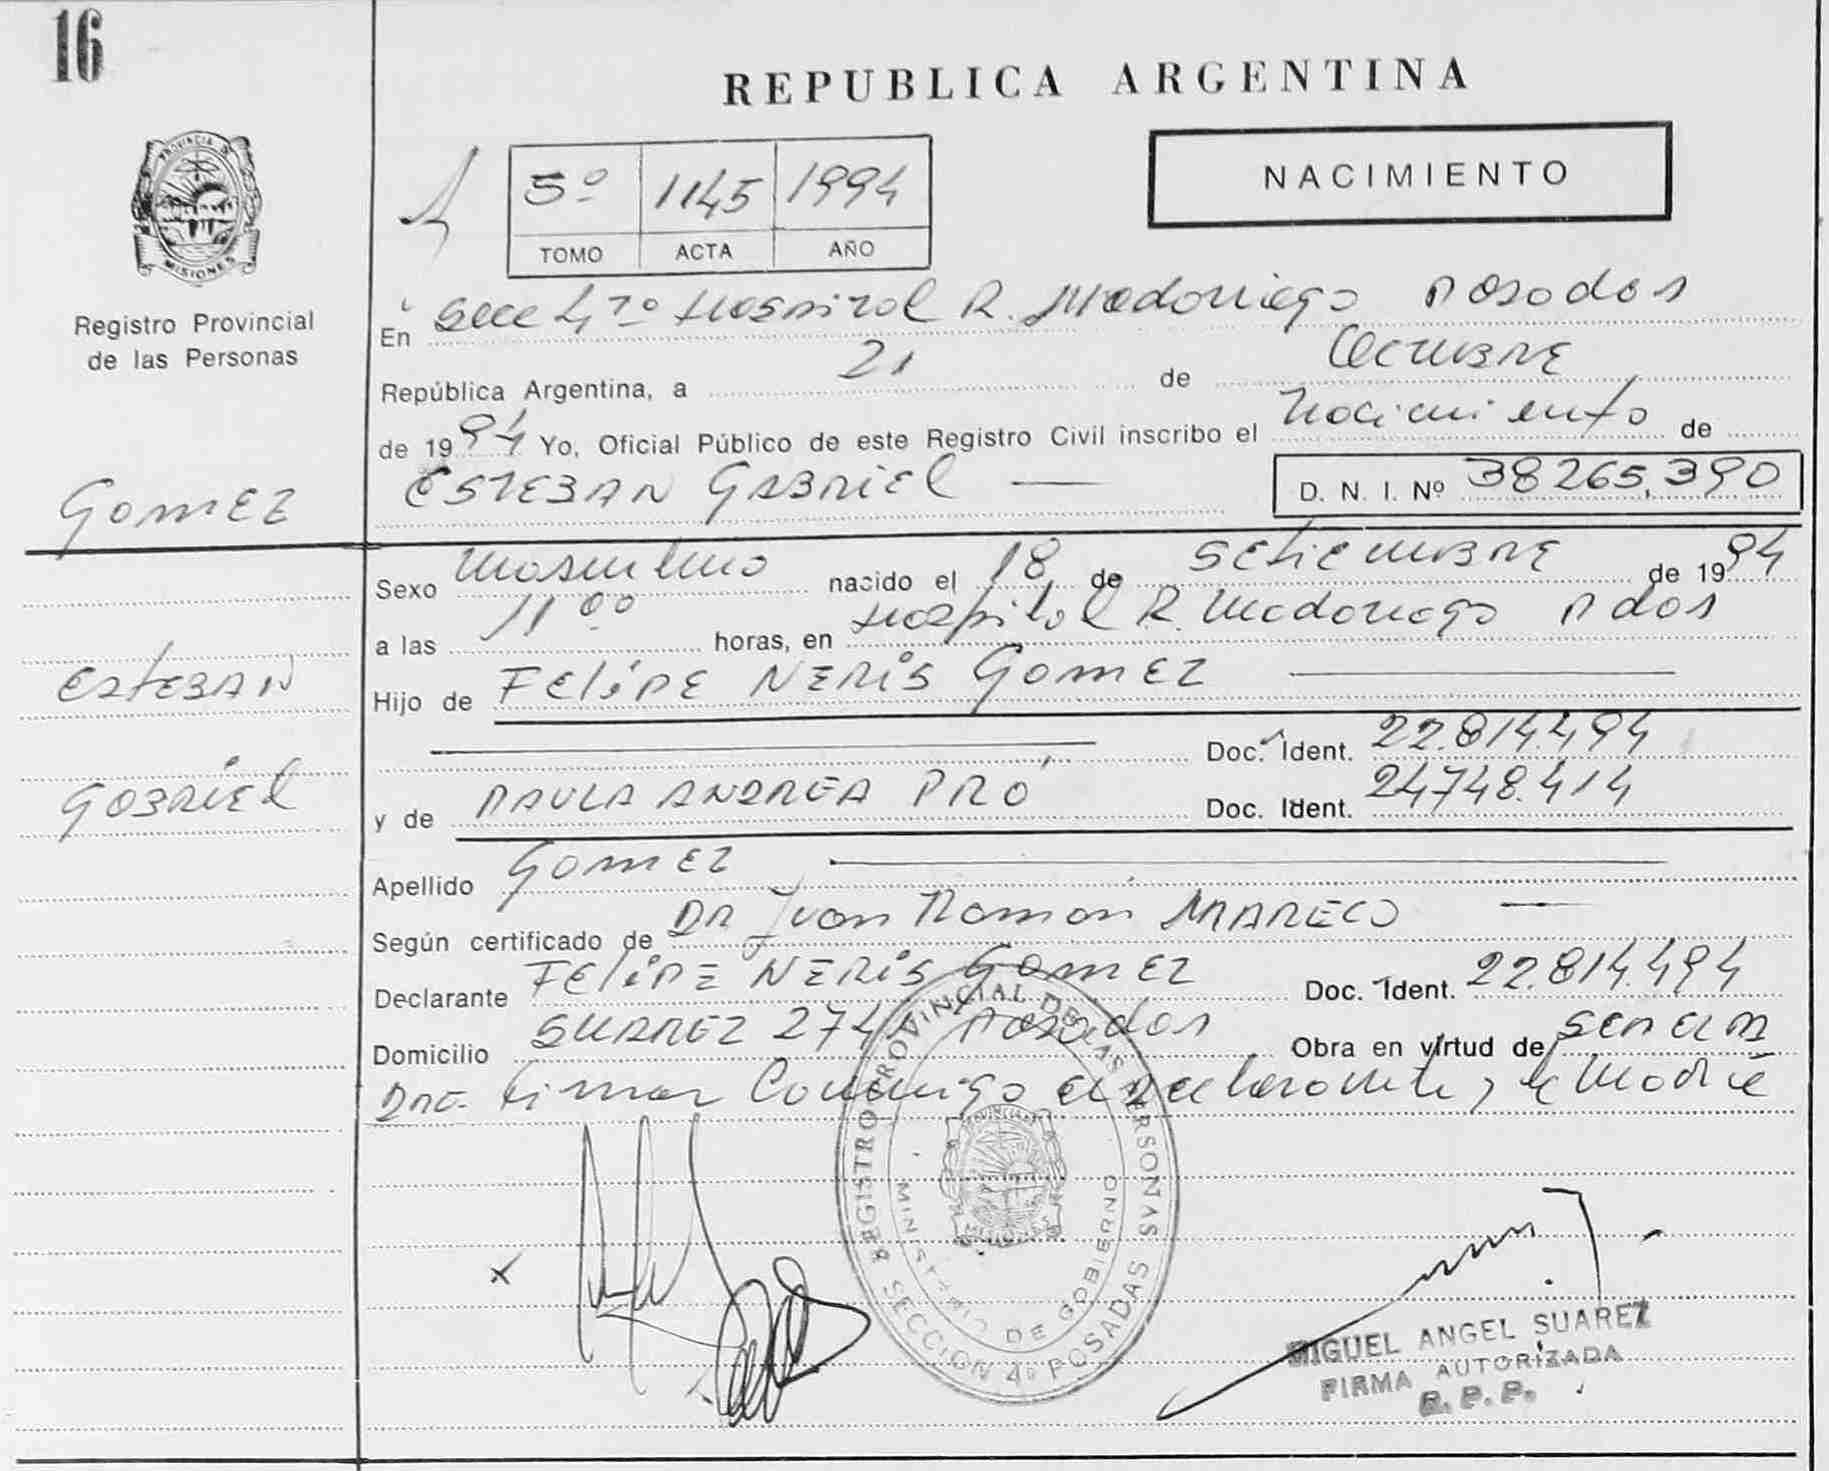 16
REPUBLICA ARGENTINA
PROVINCIA DE MISIONES
Registro Provincial
de las Personas
NACIMIENTO
5º 1145 1994
TOMO ACTA AÑO
En Secc 4ta Hospital R. Madariaga Posadas
República Argentina, a 21 de Octubre
de 1994 Yo, Oficial Público de este Registro Civil inscribo el Nacimiento de
Gomez
ESTEBAN GABRIEL
D. N. I. Nº 38265.390
Sexo Masculino nacido el 18 de SETIEMBRE de 1994
a las 11 00 horas, en Hospital R. Madariaga Pdas
Esteban
Hijo de FELIPE NERIS GOMEZ
Doc. Ident. 22.814.494
Gabriel
y de PAULA ANDREA PRÓ Doc. Ident. 24748.414
Apellido GOMEZ
Según certificado de DR Juan Ramon MARECO
Declarante FELIPE NERIS GOMEZ Doc. Ident. 22.814.494
Domicilio SUAREZ 274 Posadas Obra en virtud de ser el
Dne. Firman Conmigo el declarante y la Madre
REGISTRO PROVINCIAL DE LAS PERSONAS
MINISTERIO DE GOBIERNO
SECCION 4º POSADAS
MIGUEL ANGEL SUAREZ
FIRMA AUTORIZADA
R. P. P.